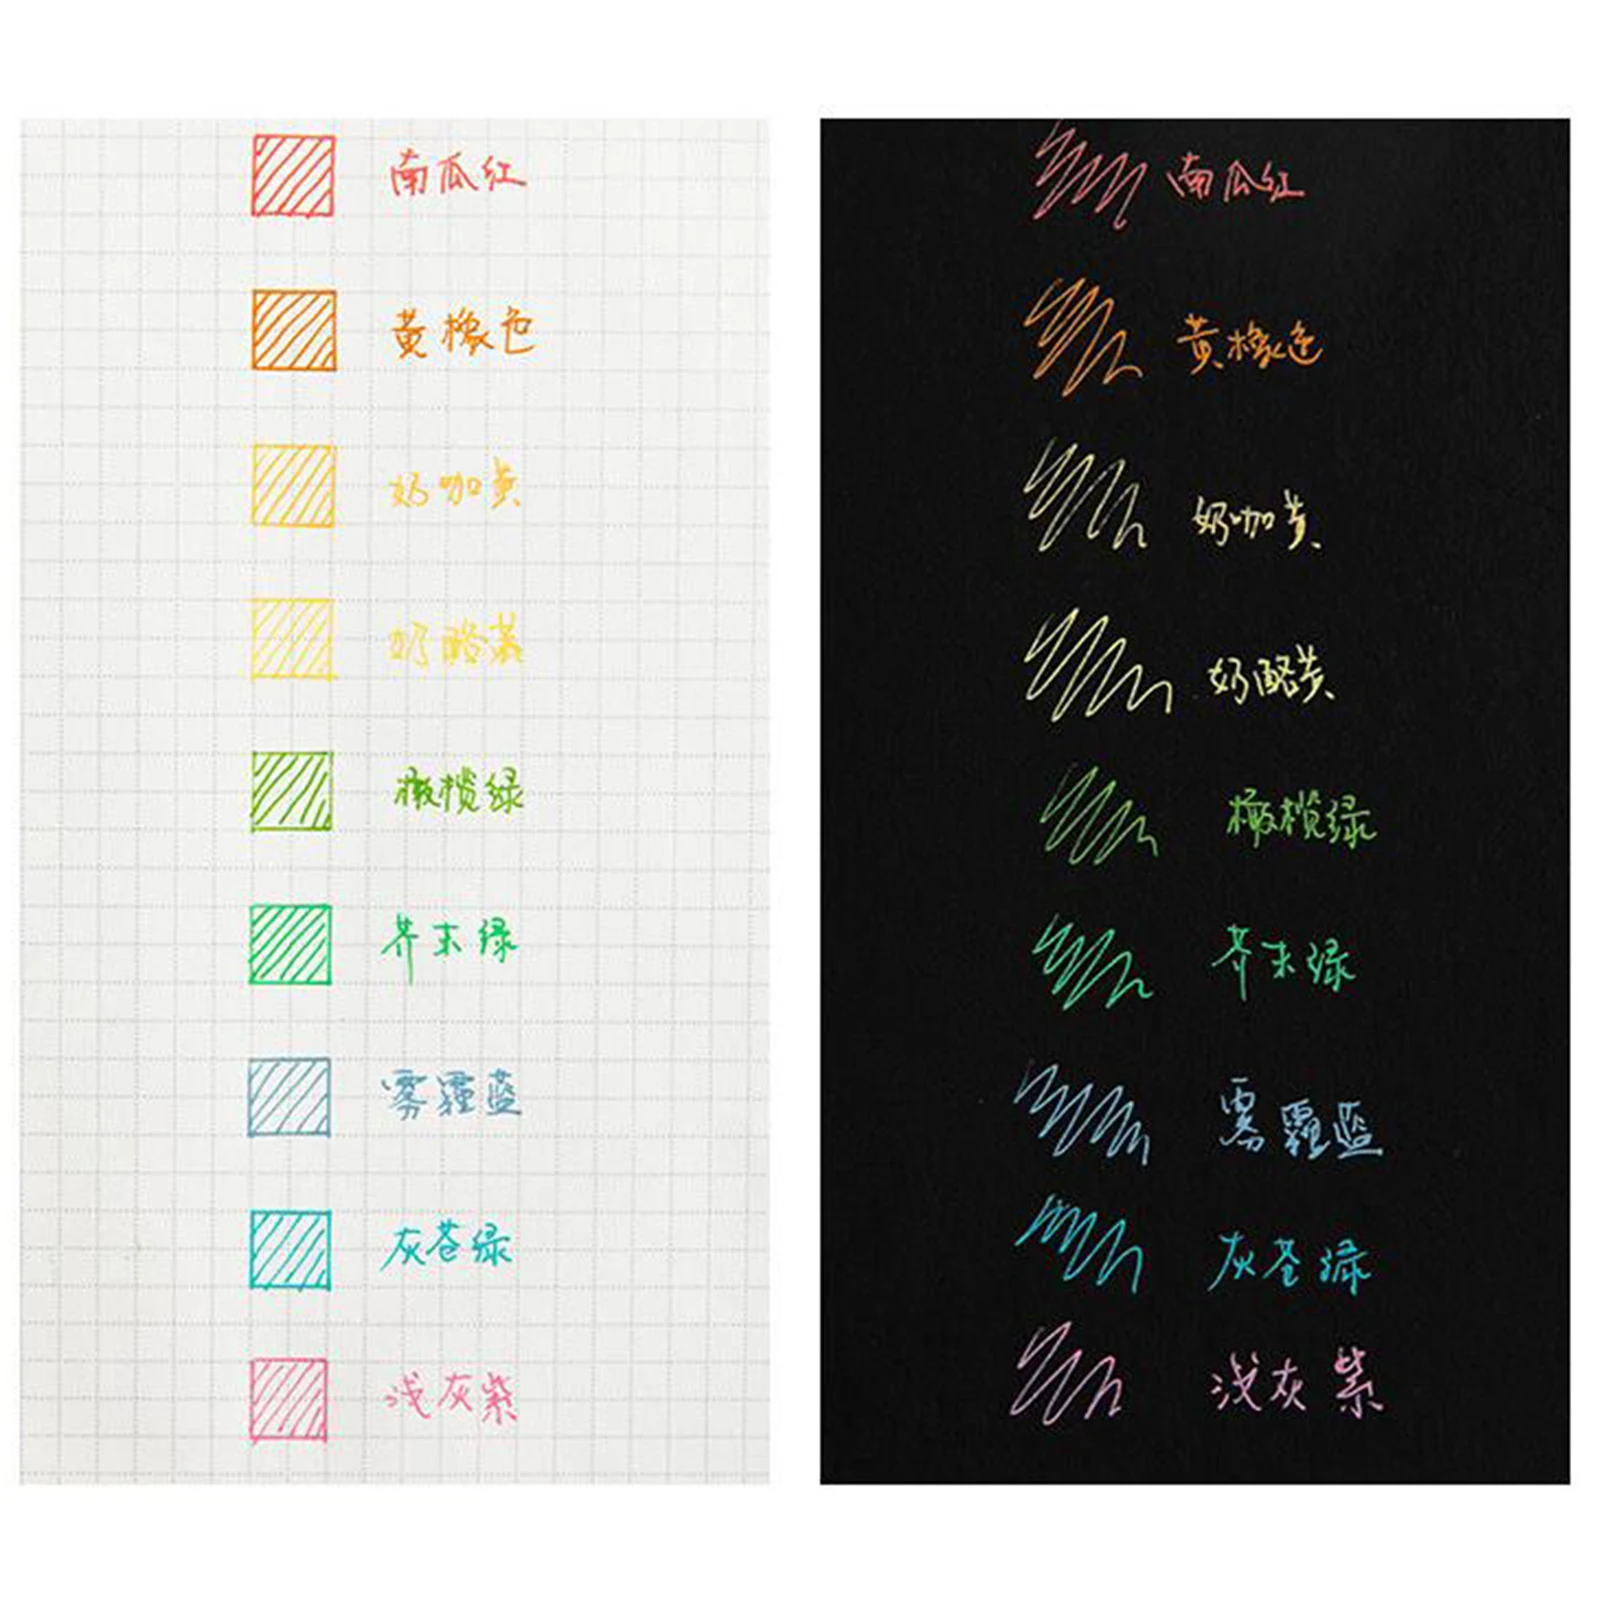 南瓜红
黄橡色
奶咖黄
奶酪黄
橄榄绿
芥末绿
雾霾蓝
灰苍绿
浅灰紫
南瓜红
黄橡色
奶咖黄
奶酪黄
橄榄绿
芥末绿
雾霾蓝
灰苍绿
浅灰紫